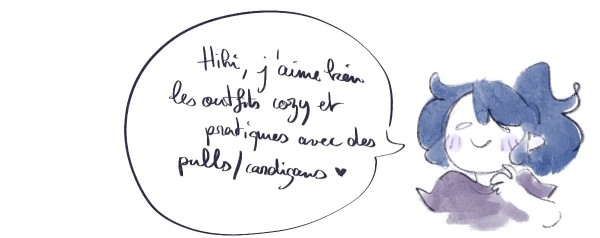 Hihi, j'aime bien
les outfits cozy et
pratiques avec des
pulls/cardigans ♥